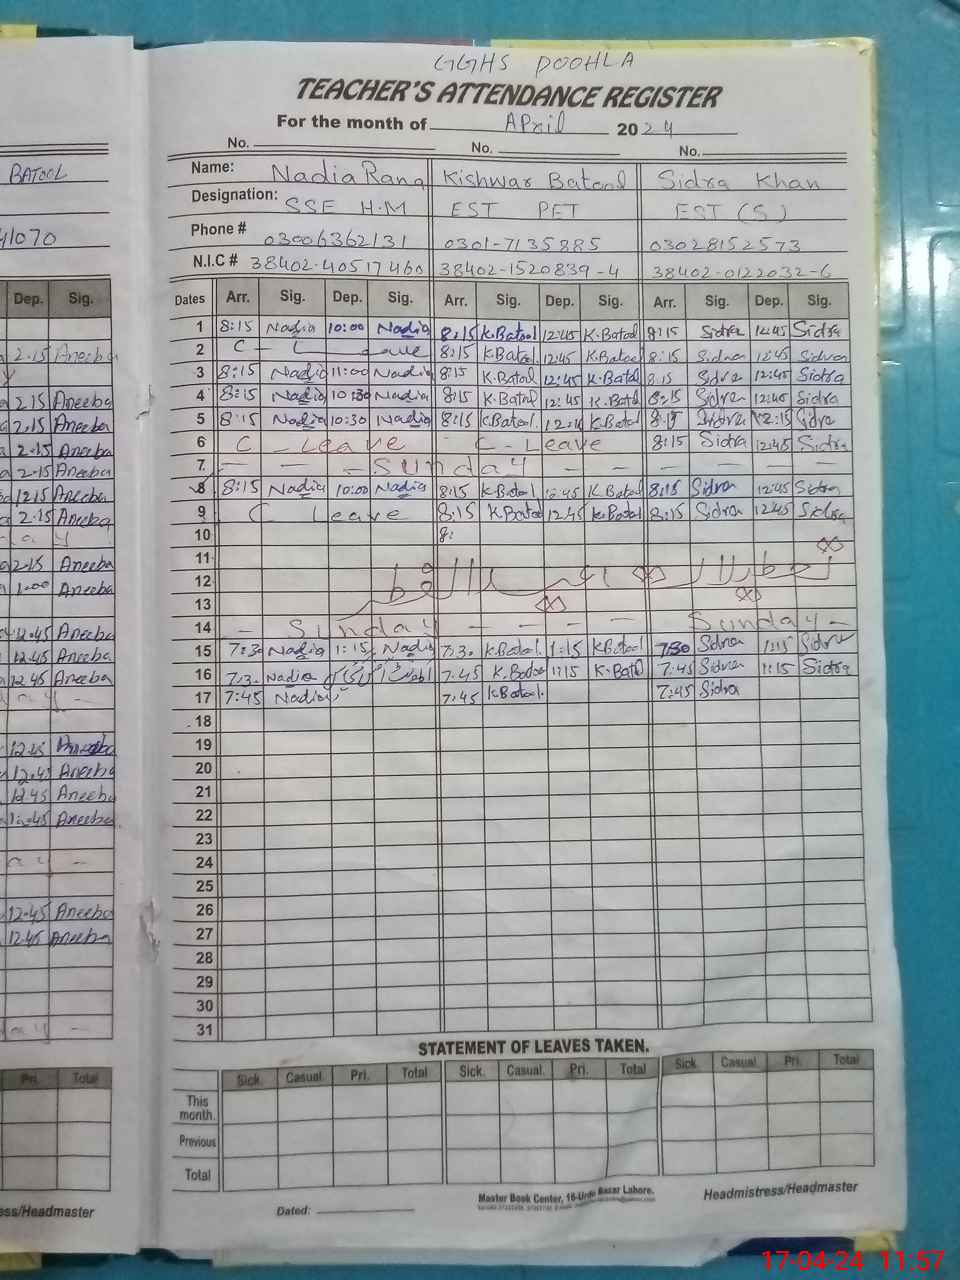 GGHS DOOHLA
TEACHER'S ATTENDANCE REGISTER
For the month of April 2024
No. No. No.
BATOOL Name: Nadia Rana Kishwar Batool Sidra Khan
Designation: SSE H.M EST PET EST (S)
41070 Phone # 03006362131 0301-7135885 03028152573
N.I.C # 38402-40517460 38402-1520839-4 38402-0122032-6
Dep. Sig. Dates Arr. Sig. Dep. Sig. Arr. Sig. Dep. Sig. Arr. Sig. Dep. Sig.
1 8:15 Nadia 10:00 Nadia 8:15 K.Batool 12:45 K.Batool 8:15 Sidra 12:45 Sidra
2.15 Aneeba 2 C - Leave 8:15 K.Batool 12:45 K.Batool 8:15 Sidra 12:45 Sidra
3 8:15 Nadia 11:00 Nadia 8:15 K.Batool 12:45 K.Batool 8:15 Sidra 12:45 Sidra
2.15 Aneeba 4 8:15 Nadia 10:30 Nadia 8:15 K.Batool 12:45 K.Batool 8:15 Sidra 12:45 Sidra
2.15 Aneeba 5 8:15 Nadia 10:30 Nadia 8:15 K.Batool K.Batool 8:15 Sidra 12:15 Sidra
2.15 Aneeba 6 C - Leave C - Leave 8:15 Sidra 12:45 Sidra
2.15 Aneeba 7 - - - Sunday - - - - - -
12.15 Aneeba 8 8:15 Nadia 10:00 Nadia 8:15 K.Batool 12:45 K.Batool 8:15 Sidra 12:45 Sidra
2.15 Aneeba 9 C Leave 8:15 K.Batool 12:45 K.Batool 8:15 Sidra 12:45 Sidra
10 8:
2.15 Aneeba 11
1.00 Aneeba 12 الفطر
13
12.45 Aneeba 14 - Sunday - - - - Sunday -
12.45 Aneeba 15 7:30 Nadia 1:15 Nadia 7:30 K.Batool 1:15 K.Batool 7:30 Sidra 1:15 Sidra
12.45 Aneeba 16 7:30 Nadia 7:45 K.Batool 1:15 K.Batool 7:45 Sidra 1:15 Sidra
17 7:45 Nadia 7:45 K.Batool 7:45 Sidra
18
12.45 Aneeba 19
12.45 Aneeba 20
12.45 Aneeba 21
12.45 Aneeba 22
23
24
25
12.45 Aneeba 26
12.45 Aneeba 27
28
29
30
31
STATEMENT OF LEAVES TAKEN.
Pri. Total Sick. Casual. Pri. Total Sick. Casual. Pri. Total Sick. Casual. Pri. Total
This month.
Previous
Total
ess/Headmaster Dated: Master Book Center, 16-Urdu Bazar Lahore. Headmistress/Headmaster
17-04-24 11:57